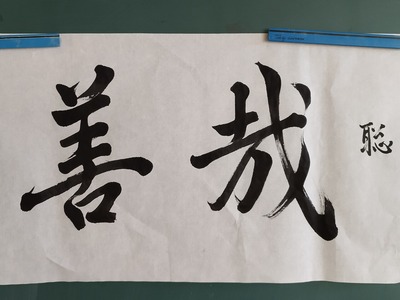 善哉 聡